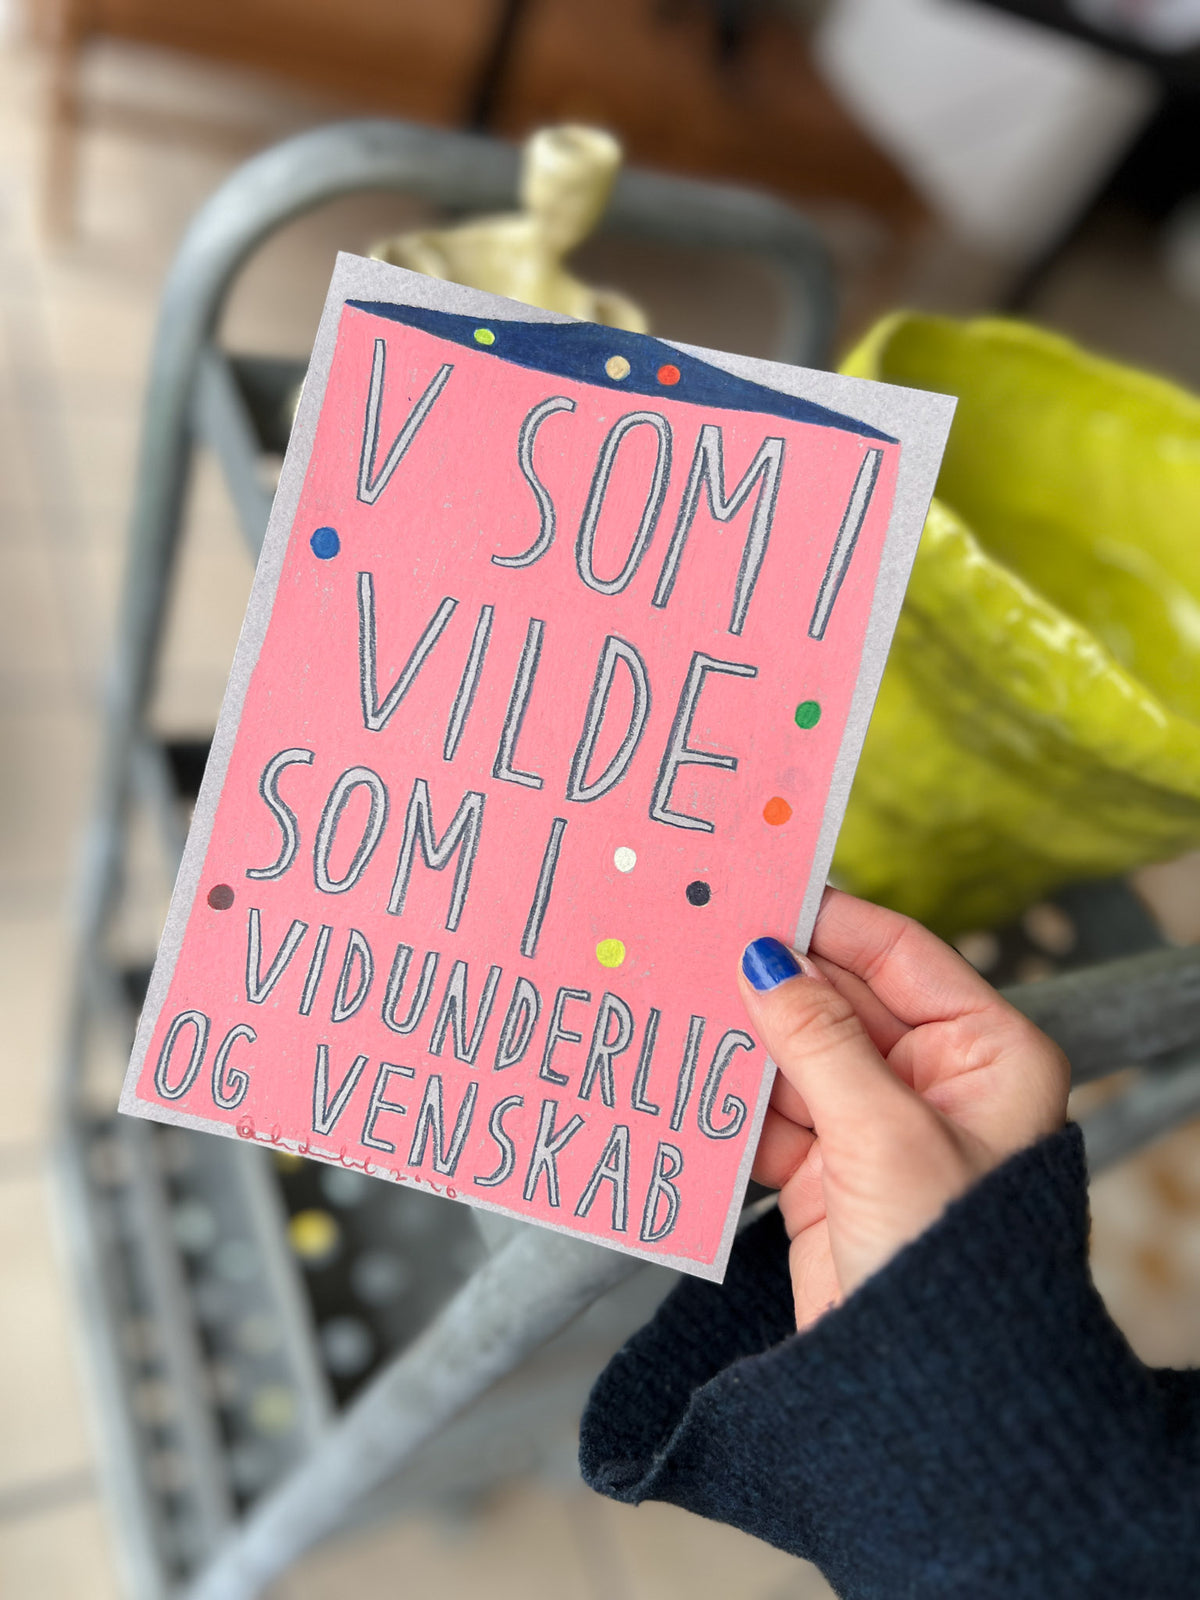 V SOM I
VILDE
SOM I
VIDUNDERLIG
OG VENSKAB
2026